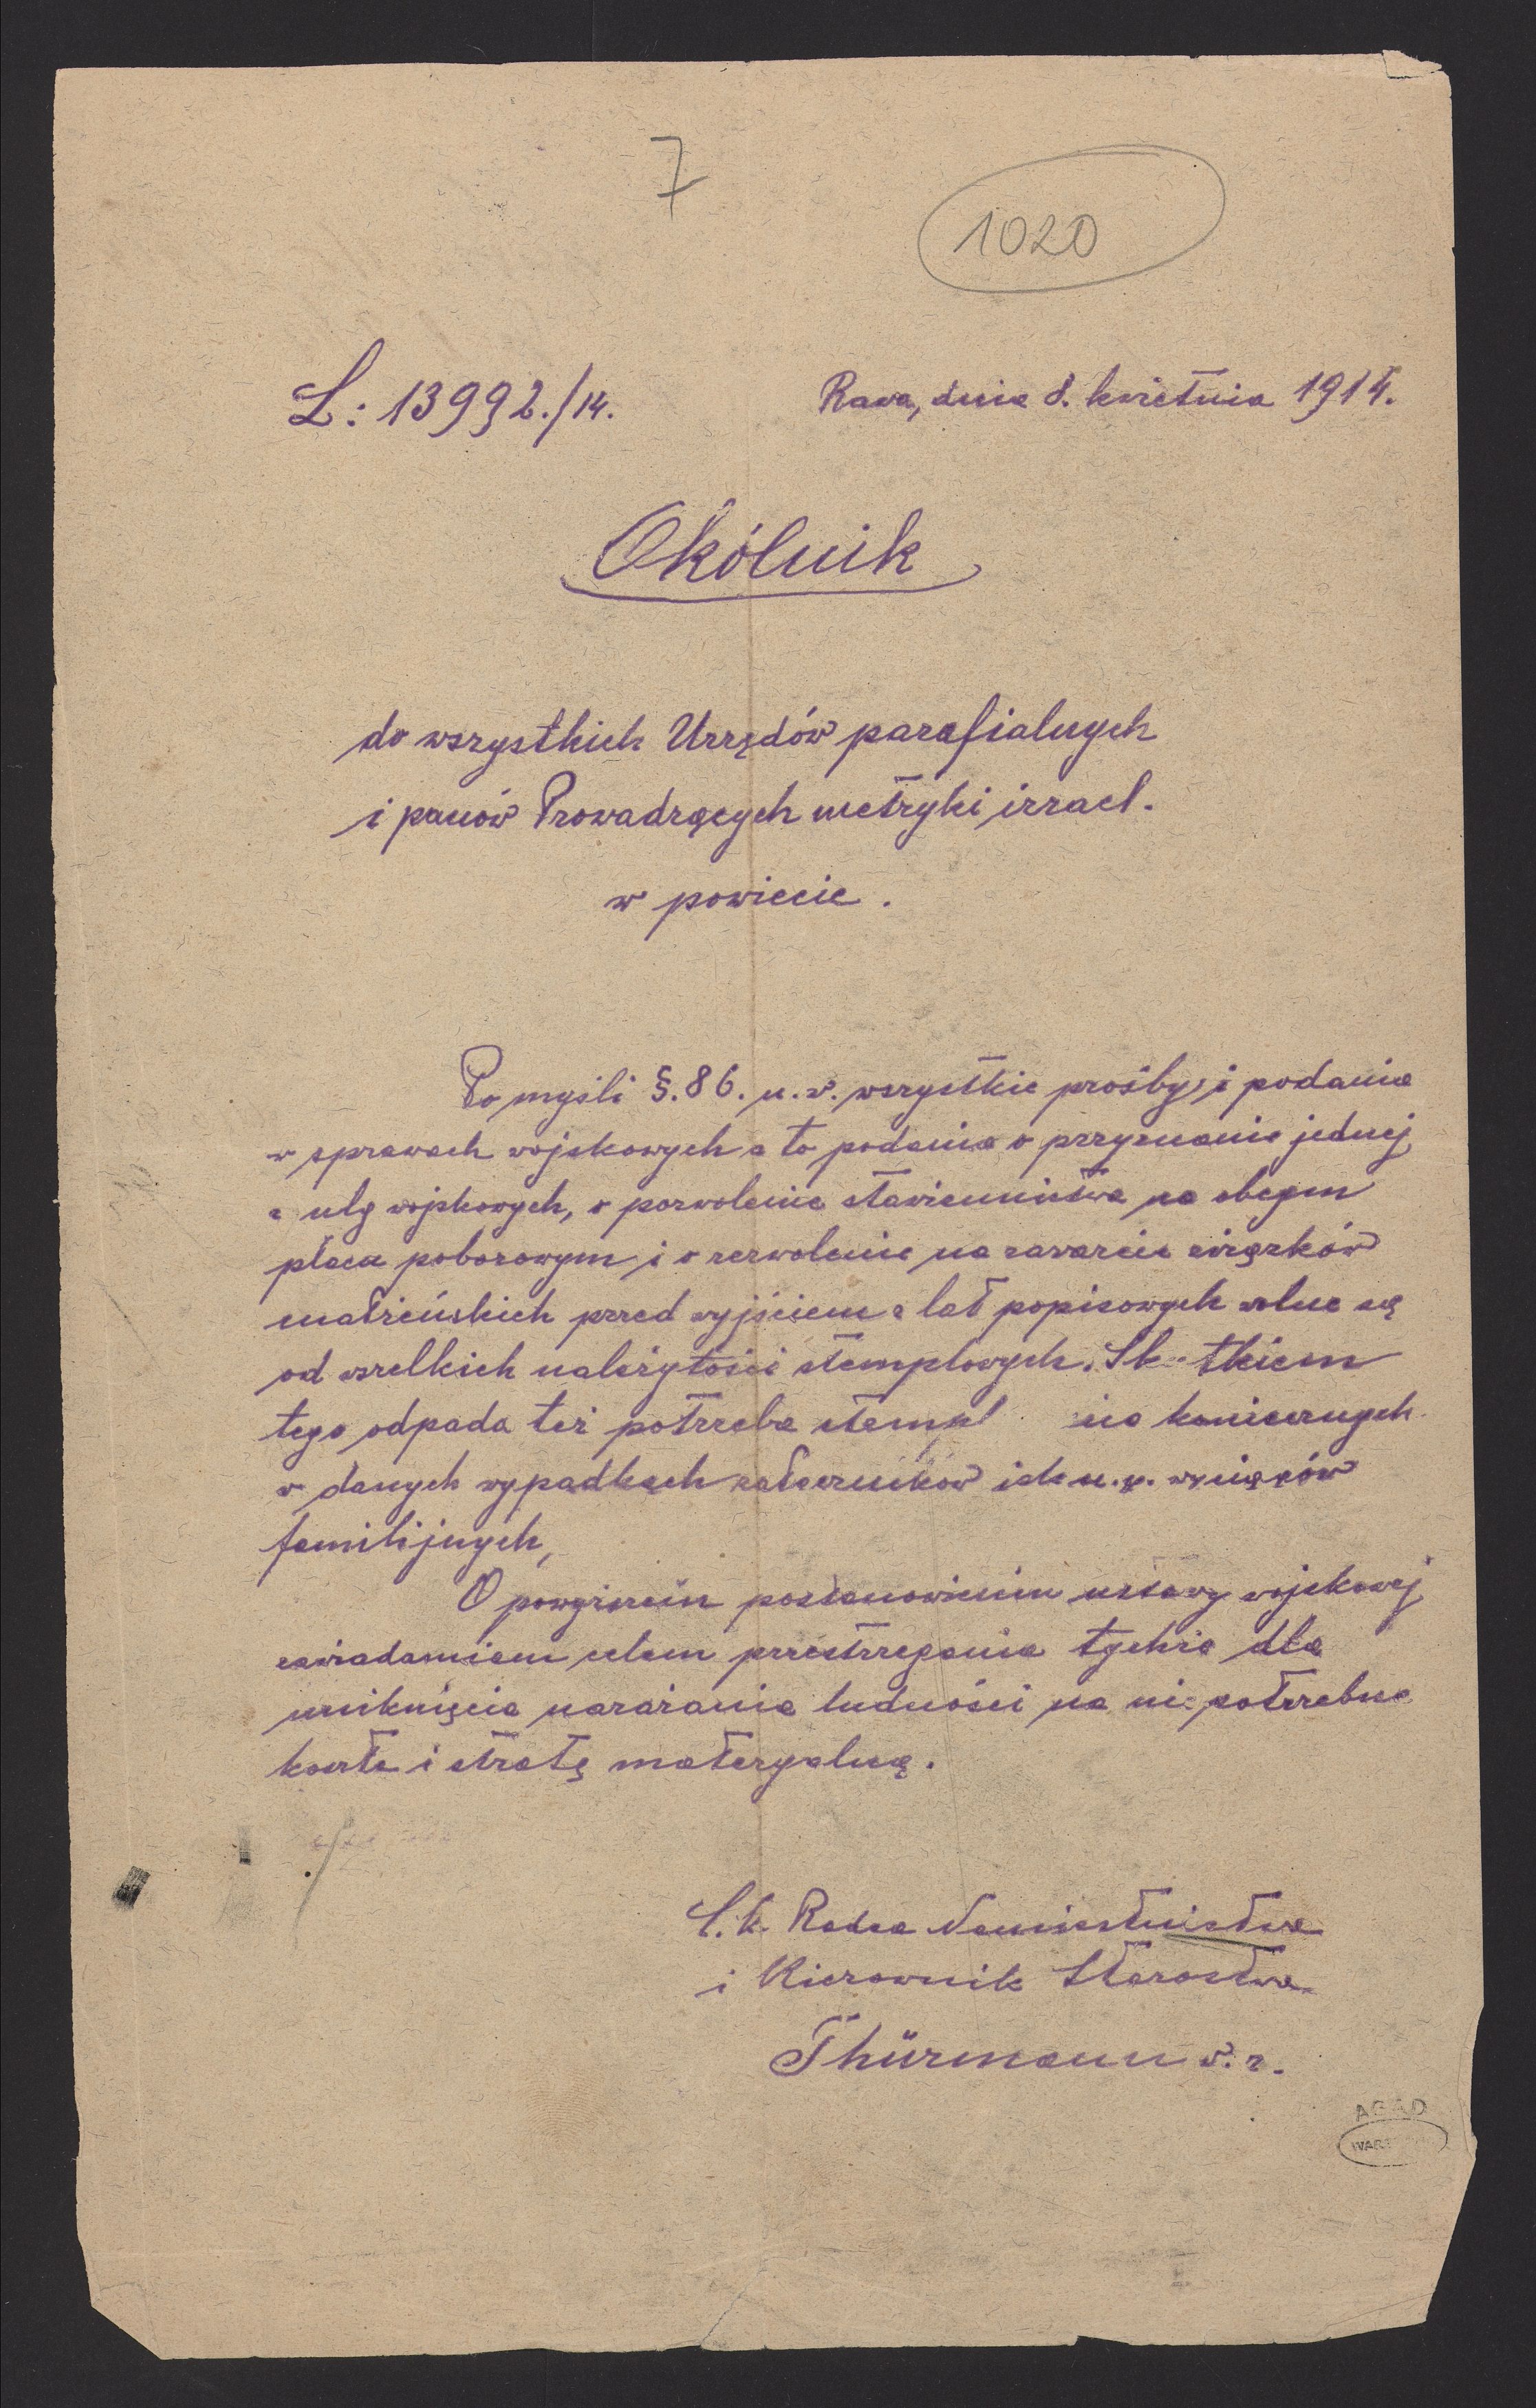 7
1020
L: 13992./14. Rawa, dnia 8. kwietnia 1914.
Okólnik
do wszystkich Urzędów parafialnych
i panów Prowadzących metryki izrael.
w powiecie.
Po myśli §. 86. u. w. wszystkie prośby i podania
w sprawach wojskowych a to podania o przyznanie jednej
z ulg wojskowych, o pozwolenie stawiennictwa na obcym
placu poborowym i o zezwolenie na zawarcie związków
małżeńskich przed wyjściem z lat popisowych wolne są
od wszelkich należytości stemplowych. Sk tkiem
tego odpada też potrzeba stempl nia koniecznych
w danych wypadkach załączników jak n. p. wyciągów
familijnych,
O powyższém postanowieniu ustawy wojskowej
zawiadamiam celem przestrzegania tychże dla
uniknięcia narażania ludności na niepotrzebne
koszta i stratę materyalną.
C. k. Radca Namiestnictwa
i Kierownik Starostwa
Thürmann w. r.
AGAD
WAR